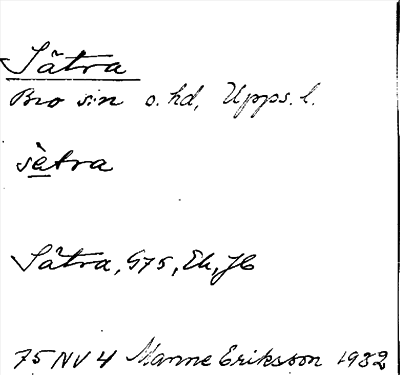 Sätra
Bro sn o. hd, Upps. l.
sètra
Sätra, G75, Ek, Jb
75 NV 4 Manne Eriksson 1932